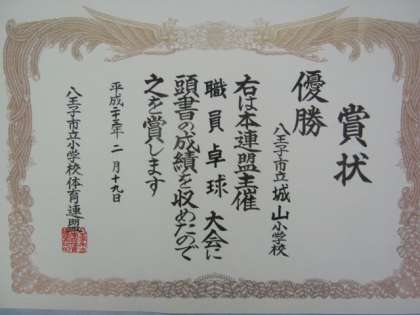 賞状
優勝
八王子市立城山小学校
右は本連盟主催
職員卓球大会に
頭書の成績を収めたので
之を賞します
平成二十三年二月十九日
八王子市立小学校体育連盟